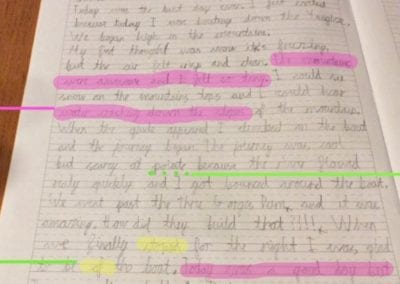 Today was the best day ever. I just ended
because today I was boating down the Yangtze.
We began high in the mountains.
My first thought was wow it's freezing,
but the air felt crisp and clean. The mountains
were awesome and I felt so tiny. I could see
snow on the mountains tops and I could hear
water rushing down the slopes of the mountain.
When the guide appeared I climbed on the boat
and the journey began. The journey was cool
but scary at points because the river flowed
really quickly and I got bounced around the boat.
We went past the Three Gorges Dam and it was
amazing. How did they build that?!!! When
we finally stoped for the night I was glad
to be of the boat. Today was a good day but